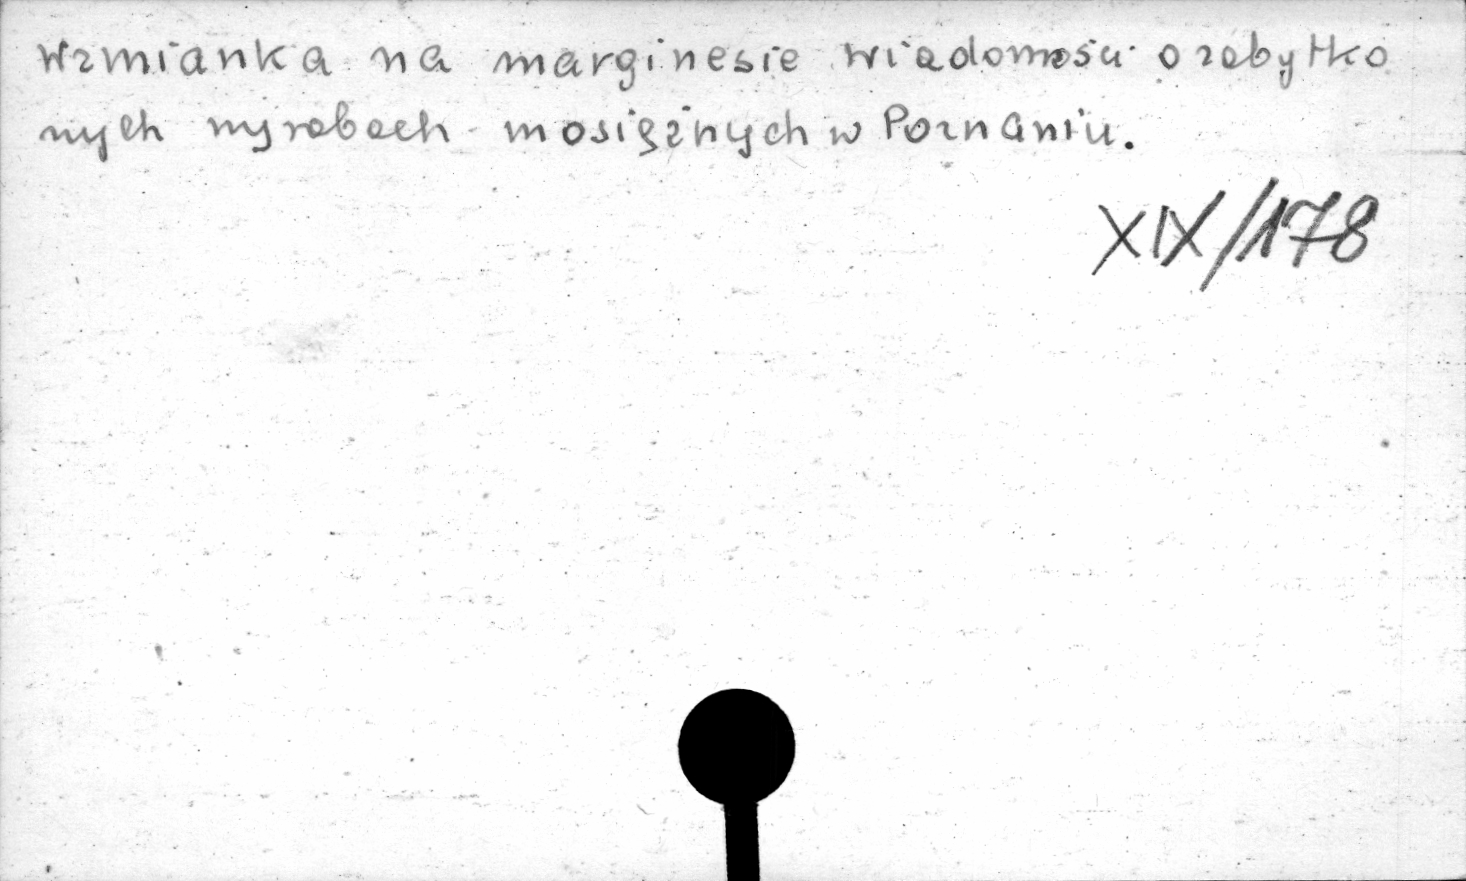 Wzmianka na marginesie wiadomości o zabytko
wych wyrobach mosiężnych w Poznaniu.
XIX/178